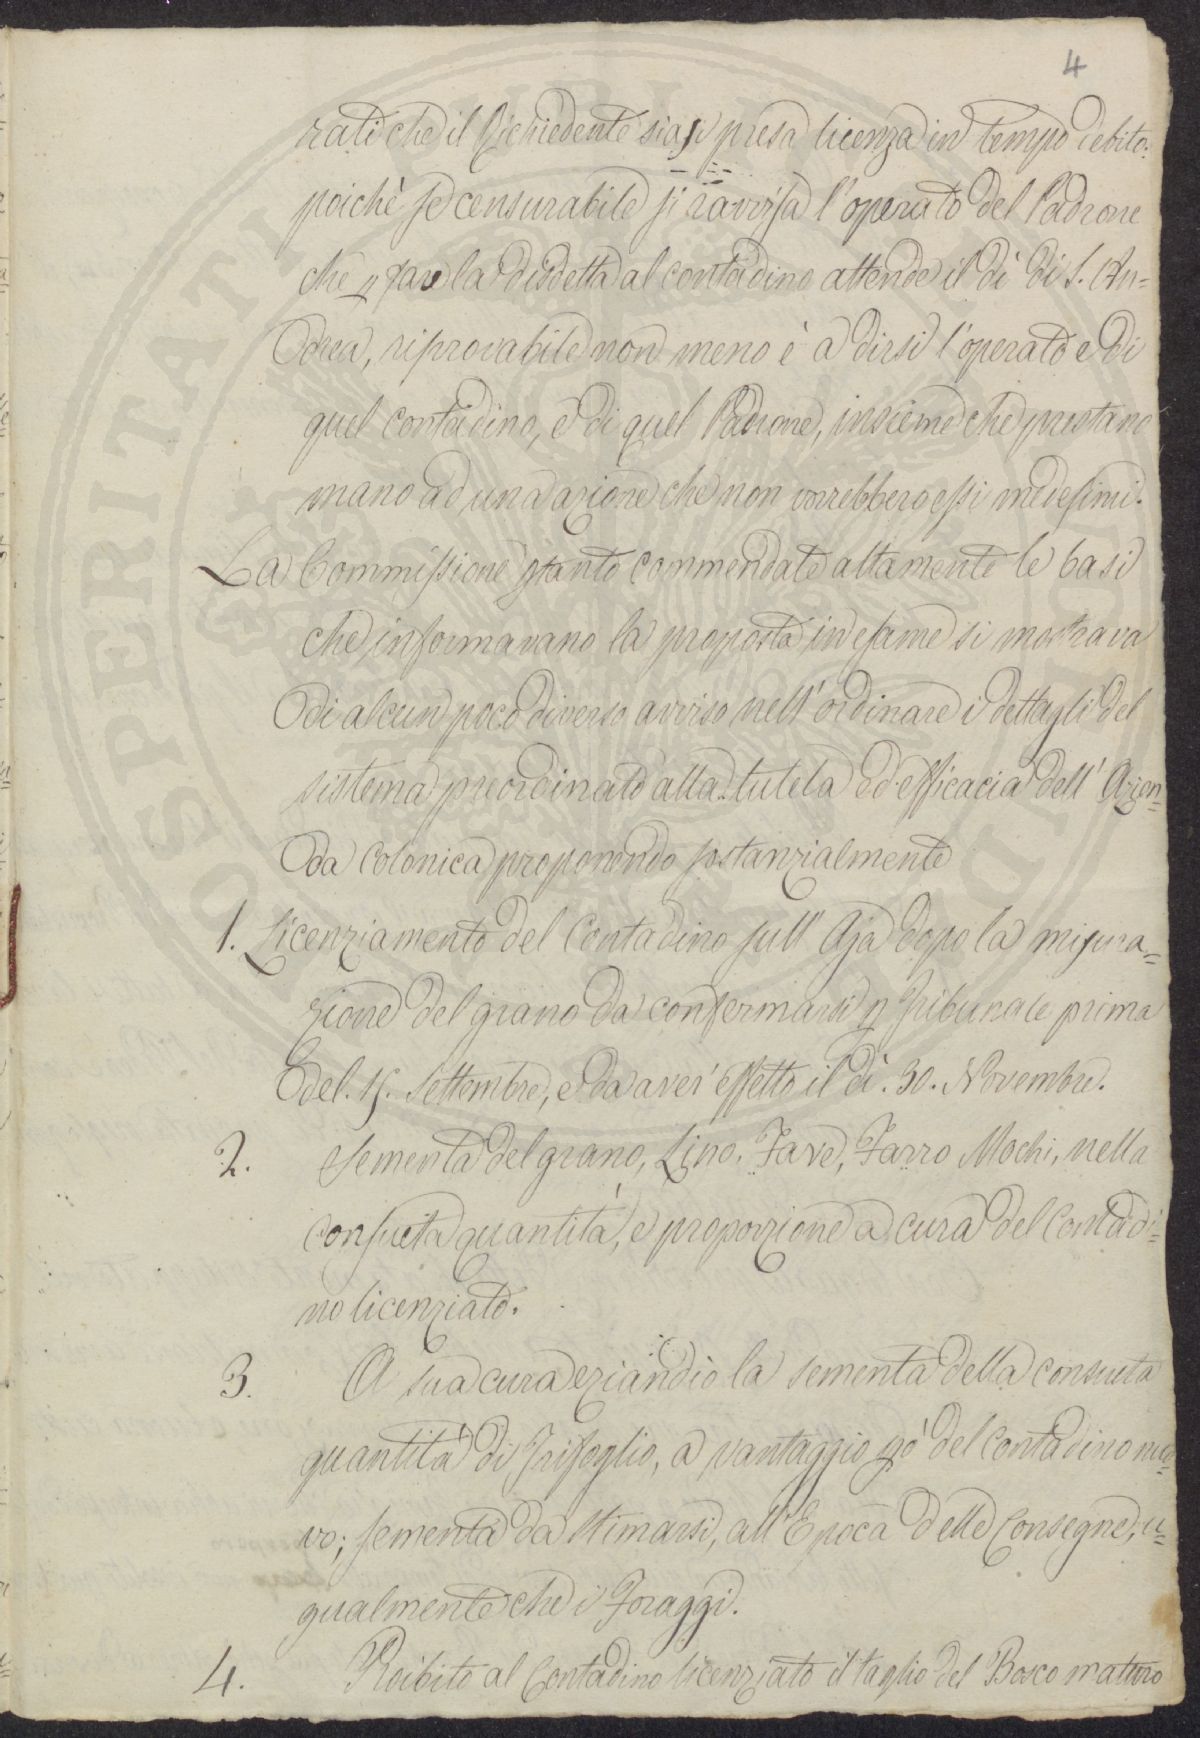 4
rati che il Richiedente siasi presa licenza in tempo debito:
poichè se censurabile si ravvisa l'operato del Padrone
che p fare la disdetta al contadino attende il dì di S. An=
drea, riprovabile non meno è a dirsi l'operato e di
quel contadino, e di quel Padrone, insieme che prestano
mano ad una azione che non vorrebbero essi medesimi.
La Commissione stante commendate altamente le basi
che informavano la proposta in esame si mostrava
di alcun poco diverso avviso nell'ordinare i dettagli del
sistema preordinato alla tutela ed efficacia dell'Azien=
da Colonica proponendo sostanzialmente
1. Licenziamento del Contadino sull'Aja dopo la misura=
zione del grano da confermarsi p Tribunale prima
del 15. Settembre, e da aver effetto il dì 30. Novembre.
2. Sementa del grano, Lino. Fave, Farro Mochi, nella
consueta quantità, e proporzione a cura del Contadi=
no licenziato.
3. A sua cura eziandio la sementa della consueta
quantità di Trifoglio, a vantaggio pò del Contadino nuo=
vo; sementa da stimarsi, all'Epoca delle Consegne, u=
gualmente che i Foraggi.
4. Proibito al Contadino licenziato il taglio del Bosco maturo